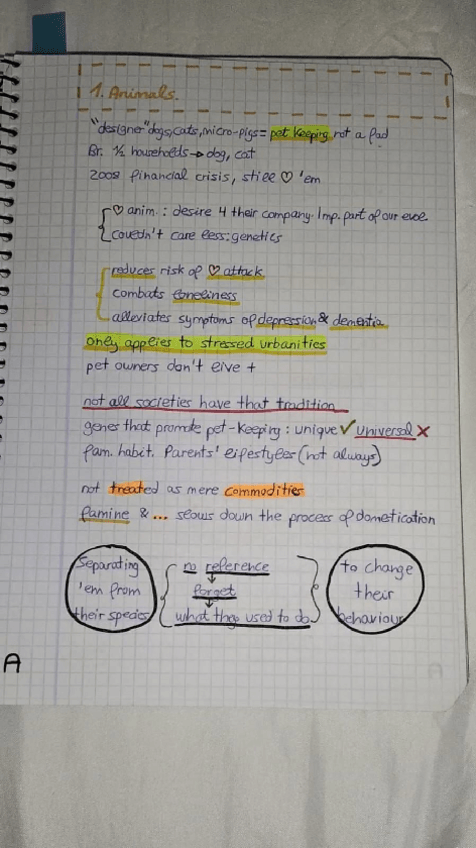 1. Animals.
"designer" dogs, cats, micro-pigs = pet keeping, not a fad
Br. 1/2 households → dog, cat
2008 financial crisis, still ♡ 'em
♡ anim.: desire 4 their company. Imp. part of our evol
couldn't care less: genetics
reduces risk of ♡ attack
combats loneliness
alleviates symptoms of depression & dementia
only applies to stressed urbanities
pet owners don't live +
not all societies have that tradition
genes that promote pet-keeping: unique ✓ universal ✗
fam. habit. Parents' lifestyles (not always)
not treated as mere commodities
famine & ... slows down the process of domestication
Separating 'em from their species
no reference
↓
forget
↓
what they used to do
to change their behaviour
A